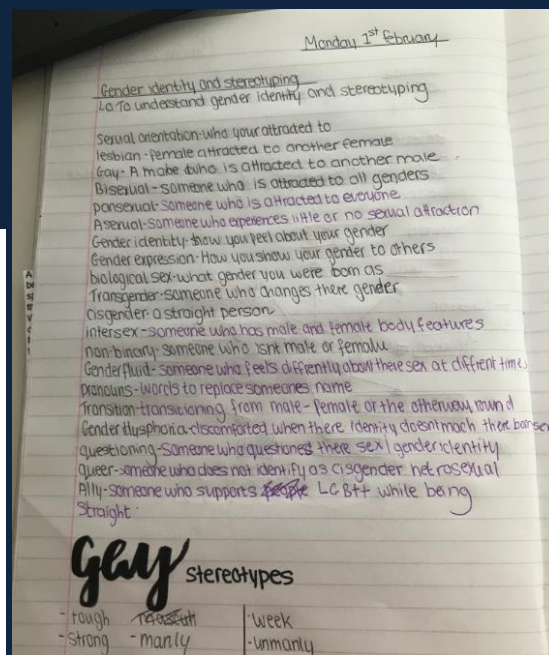 Monday 1st february
Gender identity and stereotyping
LO To understand gender identity and stereotyping
Sexual orientation-who your attracted to
lesbian-female attracted to another female
Gay-A male who is attracted to another male
Bisexual-someone who is attracted to all genders
pansexual-Someone who is attracted to everyone
Asexual-Someone who experiences little or no sexual attraction
Gender identity-how you feel about your gender
Gender expression-How you show your gender to others
biological sex-what gender you were born as
Transgender-someone who changes there gender
cisgender-a straight person
intersex-someone who has male and female body features
non-binary-someone who isnt male or female
Genderfluid-someone who feels diffrently about there sex at diffrent times
pronouns-words to replace someones name
Transition-transitioning from male-female or the otherway round
Gender dysphoria-discomforted when there identity doesnt mach there
questioning-Someone who questiones there sex/gender identity
queer-someone who does not identify as cisgender hetrosexual
Ally-Someone who supports LGBT+ while being
Straight.
gay stereotypes
-tough
-week
-strong -manly
-unmanly